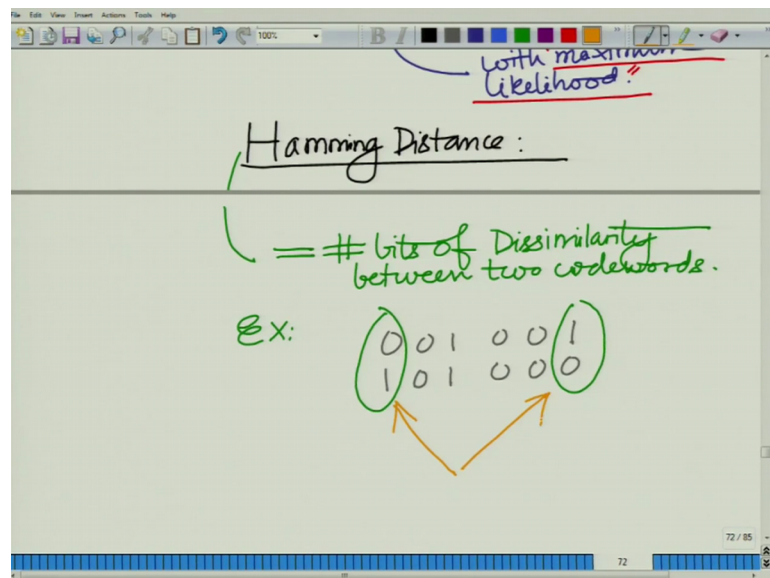 File Edit View Insert Actions Tools Help
100%
B I
with maximum
likelihood."
Hamming Distance:
= # bits of Dissimilarity
between two codewords.
Ex:
0 0 1 0 0 1
1 0 1 0 0 0
72 / 85
72